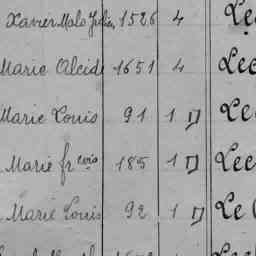 Xavier Malo Julien 1526 4 Le
Marie Alcide 1651 4 Lec
Marie Louis 91 1 D Le
Marie Frcois 185 1 D Lee
Marie Louis 92 1 D Le